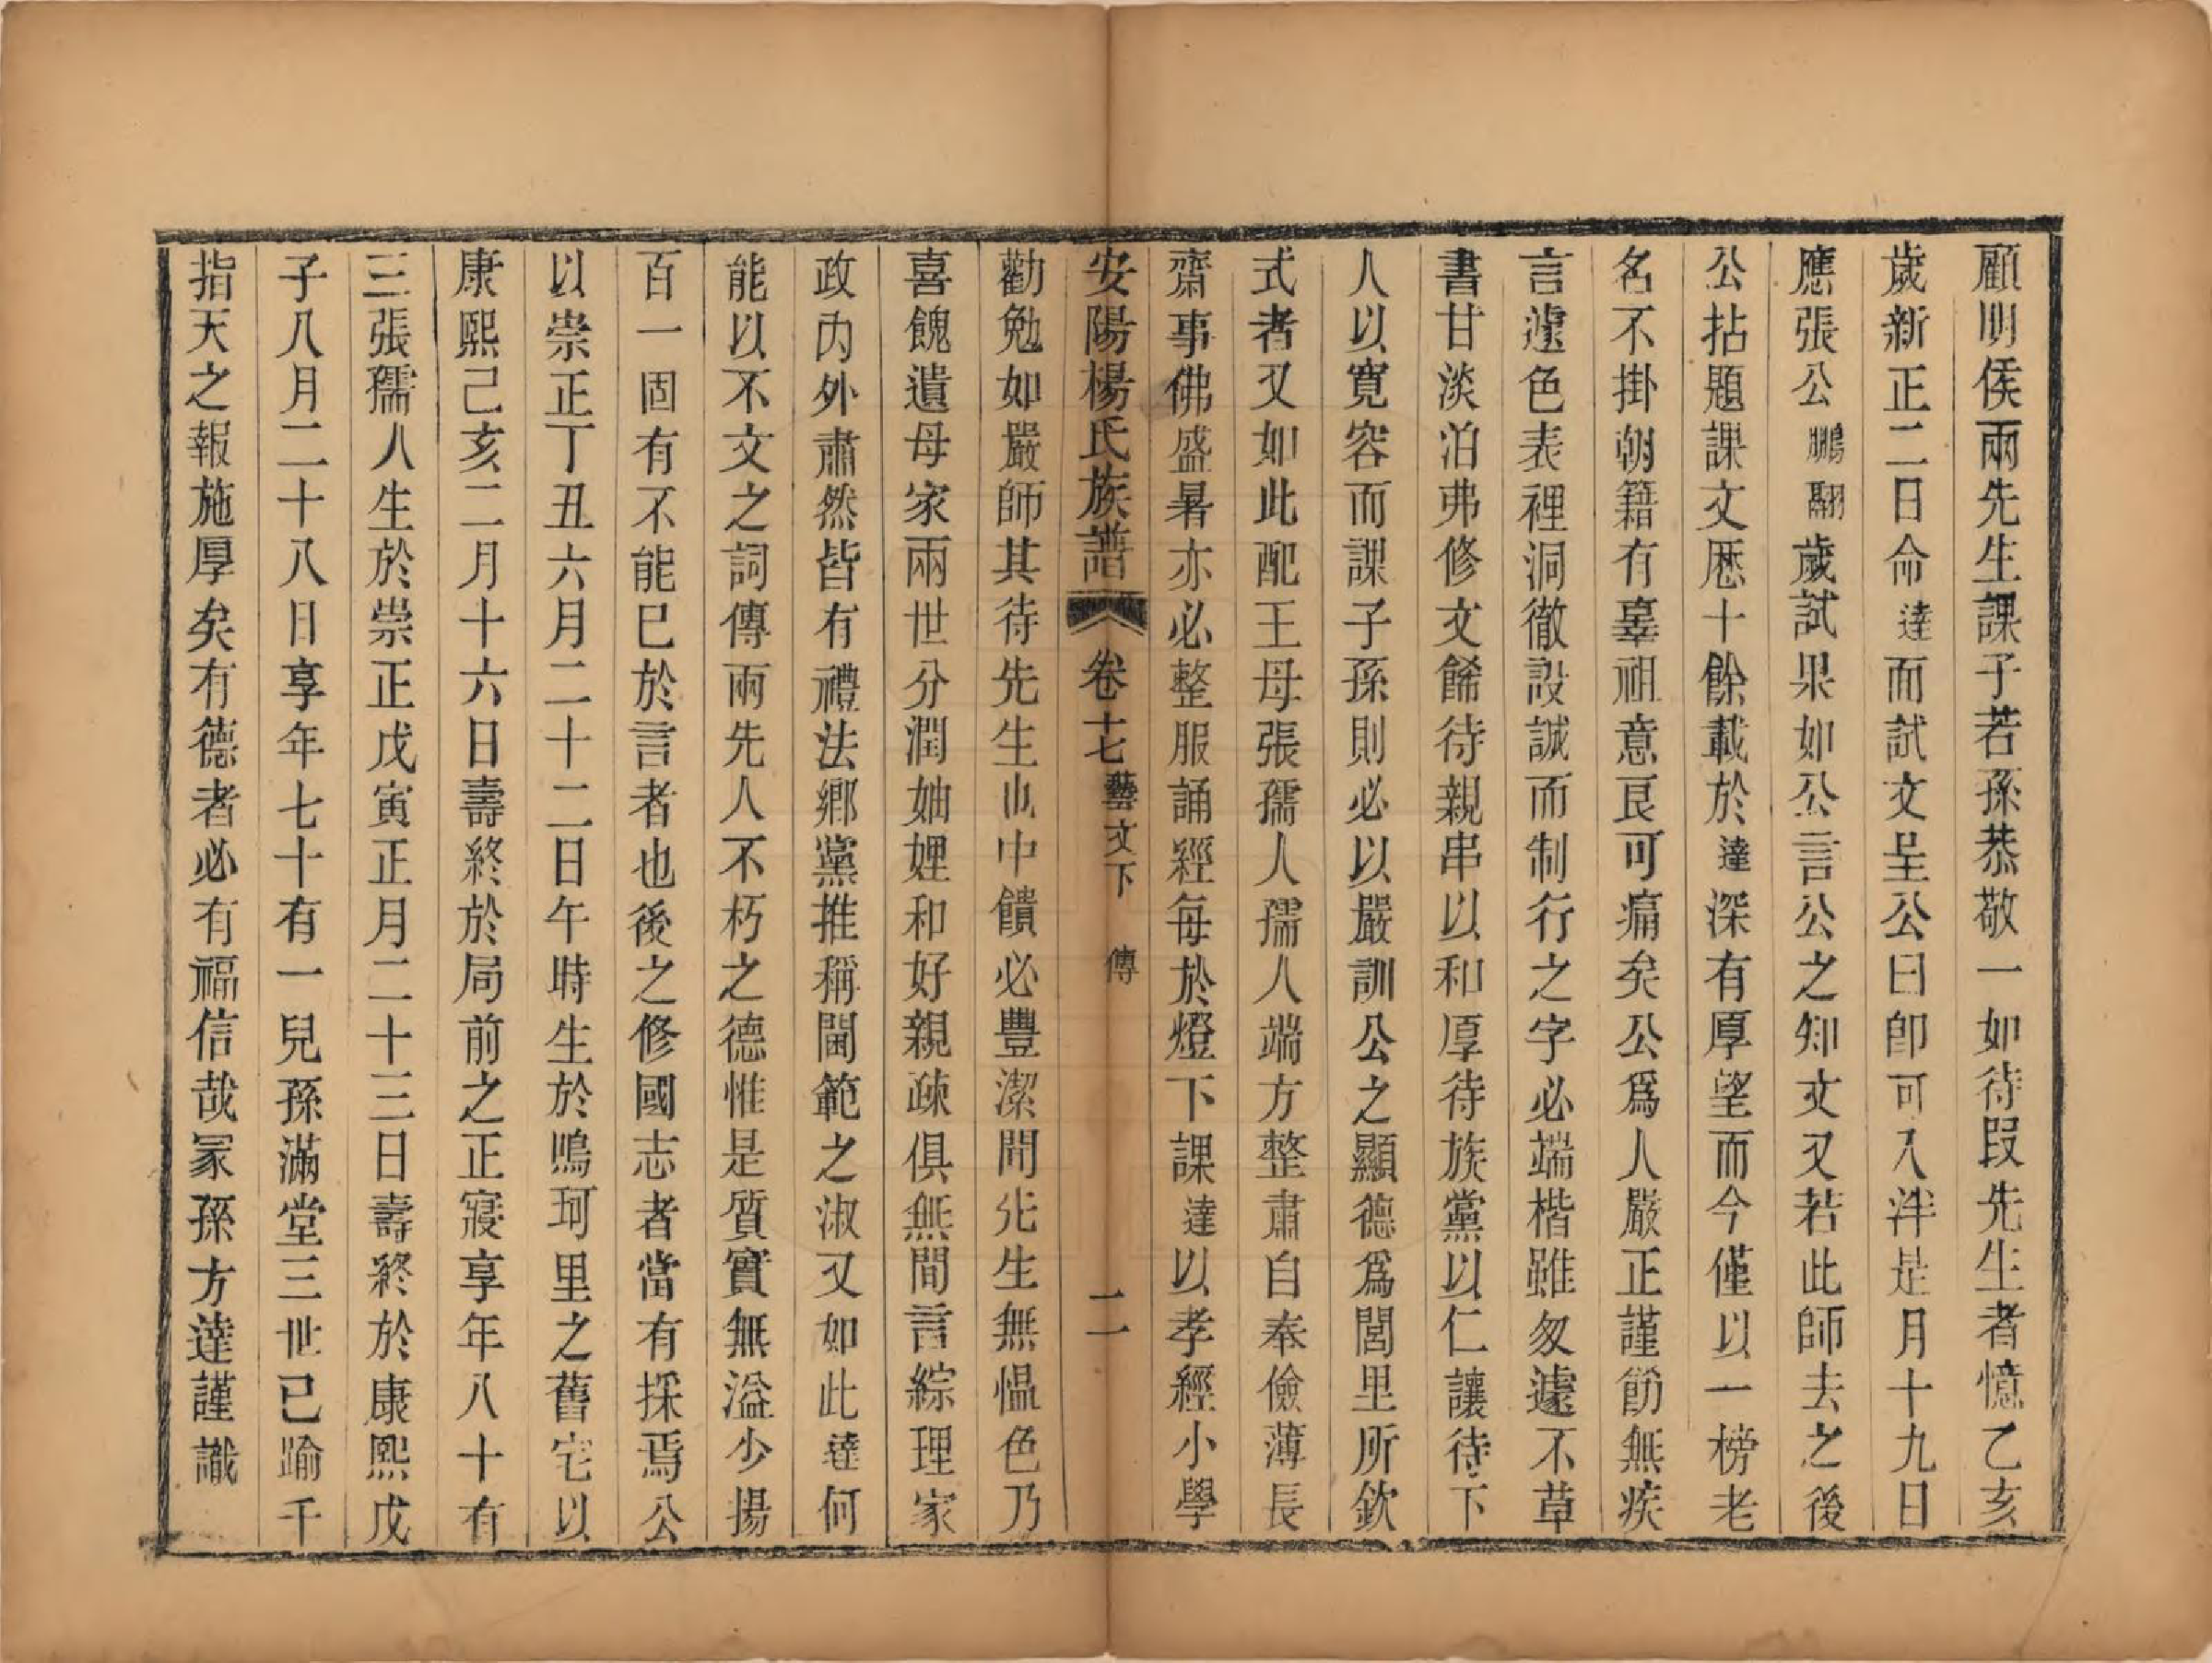 顧明侯兩先生課子若孫恭敬一如待段先生者憶乙亥
歲新正二日命達而試文呈公曰卽可入泮是月十九日
應張公鵬翮歲試果如公言公之知文又若此師去之後
公拈題課文厯十餘載於達深有厚望而今僅以一榜老
名不掛朝籍有辜祖意良可痛矣公爲人嚴正謹飭無疾
言遽色表裡洞徹設誠而制行之字必端楷雖匆遽不草
書甘淡泊弗修文餙待親串以和厚待族黨以仁讓待下
人以寬容而課子孫則必以嚴訓公之顯德爲閭里所欽
式者又如此配王母張孺人孺人端方整肅自奉儉薄長
齋事佛盛暑亦必整服誦經每於燈下課達以孝經小學
安陽楊氏族譜 卷十七 藝文下 傳 二
勸勉如嚴師其待先生也中饋必豐潔間先生無慍色乃
喜餽遺母家兩世分潤妯娌和好親疎俱無間言綜理家
政內外肅然皆有禮法鄉黨推稱閫範之淑又如此達何
能以不文之詞傳兩先人不朽之德惟是質實無溢少揚
百一固有不能已於言者也後之修國志者當有採焉公
以崇正丁丑六月二十二日午時生於鳴珂里之舊宅以
康熙己亥二月十六日壽終於局前之正寢享年八十有
三張孺人生於崇正戊寅正月二十三日壽終於康熙戊
子八月二十八日享年七十有一兒孫滿堂三世已踰千
指天之報施厚矣有德者必有福信哉冡孫方達謹識